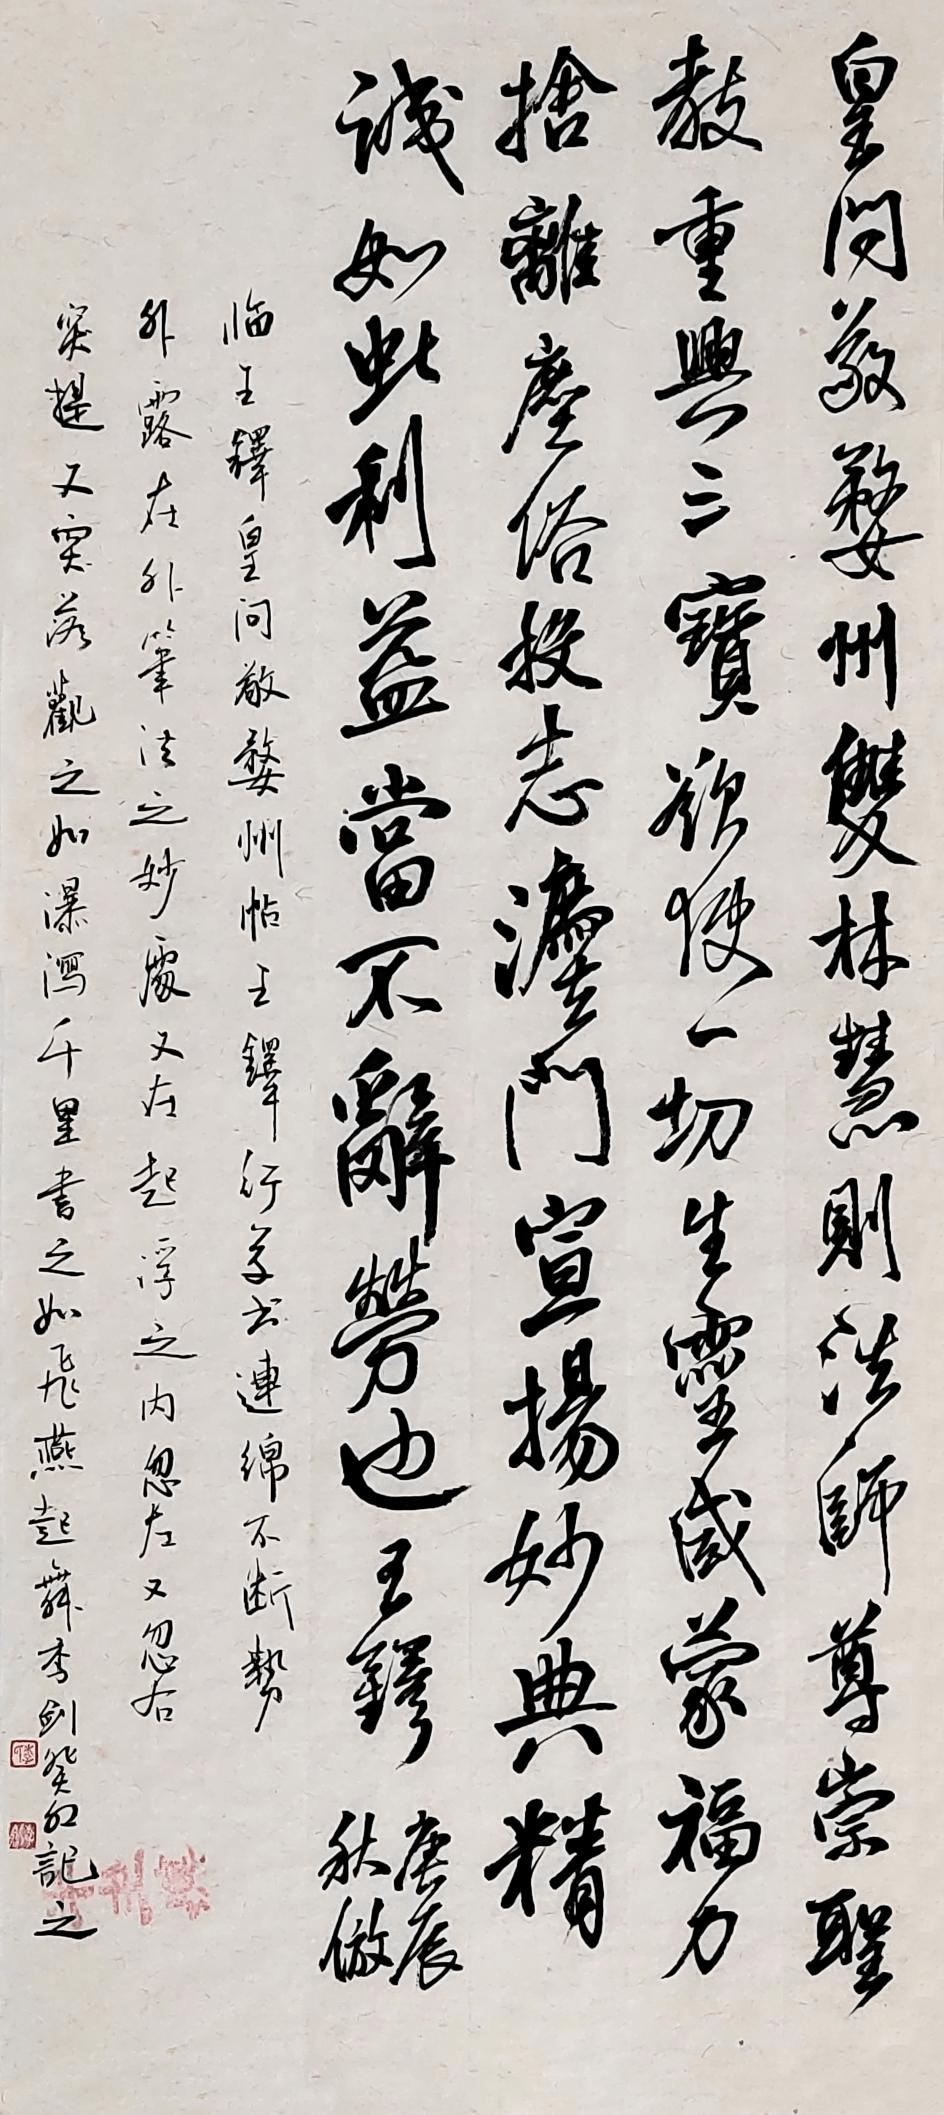 皇問敬婺州雙林慧則法師尊崇聖
教重興三寶欲使一切生靈咸蒙福力
捨離塵俗投志瀍門宣揚妙典精
誠如此利益當不辭勞也王鐸
庚辰
秋倣
临王鐸皇问敬婺州帖王鐸行草书連綿不断勢
外露在外筆法之妙處又在起浮之内忽左又忽右
突提又突落觀之如瀑瀉千里書之如飛燕起舞李剑癸卯記之